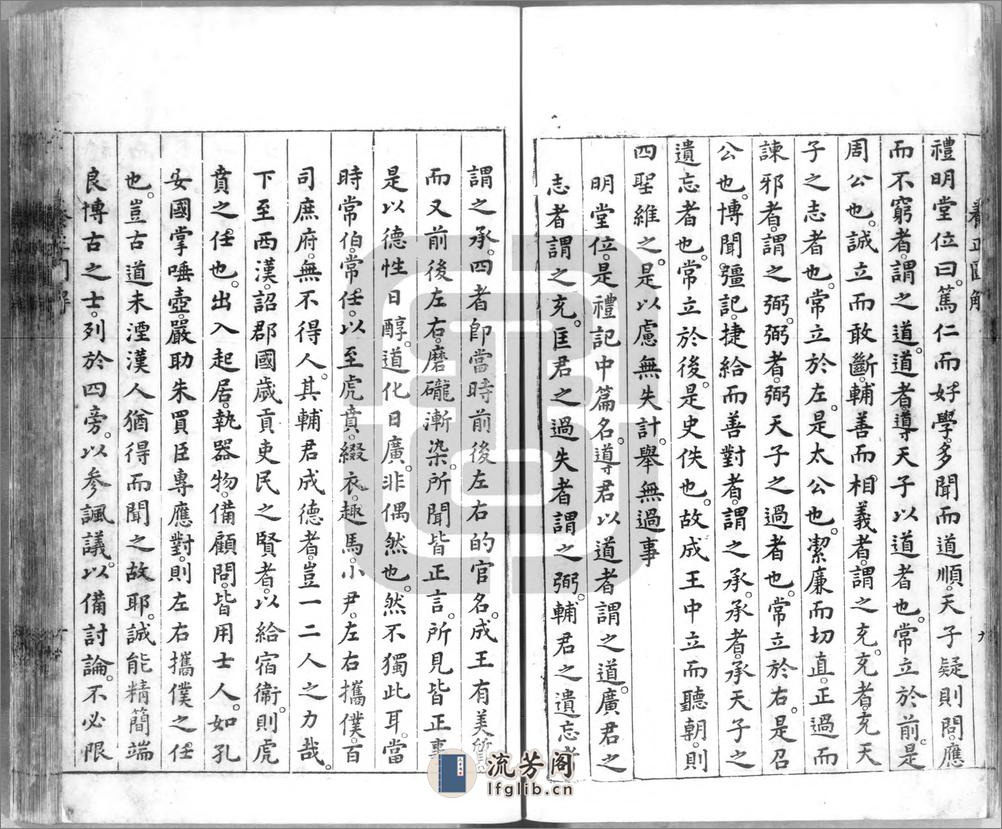 養正圖解
禮明堂位曰。篤仁而好學。多聞而道順。天子疑則問。應
而不窮者。謂之道。道者導天子以道者也。常立於前。是
周公也。誠立而敢斷。輔善而相義者。謂之充。充者充天
子之志者也。常立於左。是太公也。潔廉而切直。正過而
諫邪者。謂之弼。弼者弼天子之過者也。常立於右。是召
公也。博聞彊記。捷給而善對者。謂之承。承者承天子之
遺忘者也。常立於後。是史佚也。故成王中立而聽朝。則
四聖維之。是以慮無失計。舉無過事
明堂位。是禮記中篇名。導君以道者謂之道。廣君之
志者謂之充。匡君之過失者謂之弼。輔君之遺忘者
謂之承。四者卽當時前後左右的官名。成王有美質
而又前後左右。磨礲漸染。所聞皆正言。所見皆正事
是以德性日醇。道化日廣。非偶然也。然不獨此耳。當
時常伯。常任。以至虎賁。綴衣。趣馬。小尹。左右攜僕。百
司庶府。無不得人。其輔君成德者。豈一二人之力哉。
下至西漢。詔郡國歲貢吏民之賢者。以給宿衞。則虎
賁之任也。出入起居。執器物。備顧問。皆用士人。如孔
安國掌唾壺。嚴助朱買臣專應對。則左右攜僕之任
也。豈古道未湮。漢人猶得而聞之故耶。誠能精簡端
良博古之士。列於四旁。以參諷議。以備討論。不必限
流芳阁
lfglib.cn